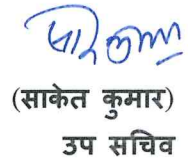 (साकेत कुमार)
उप सचिव